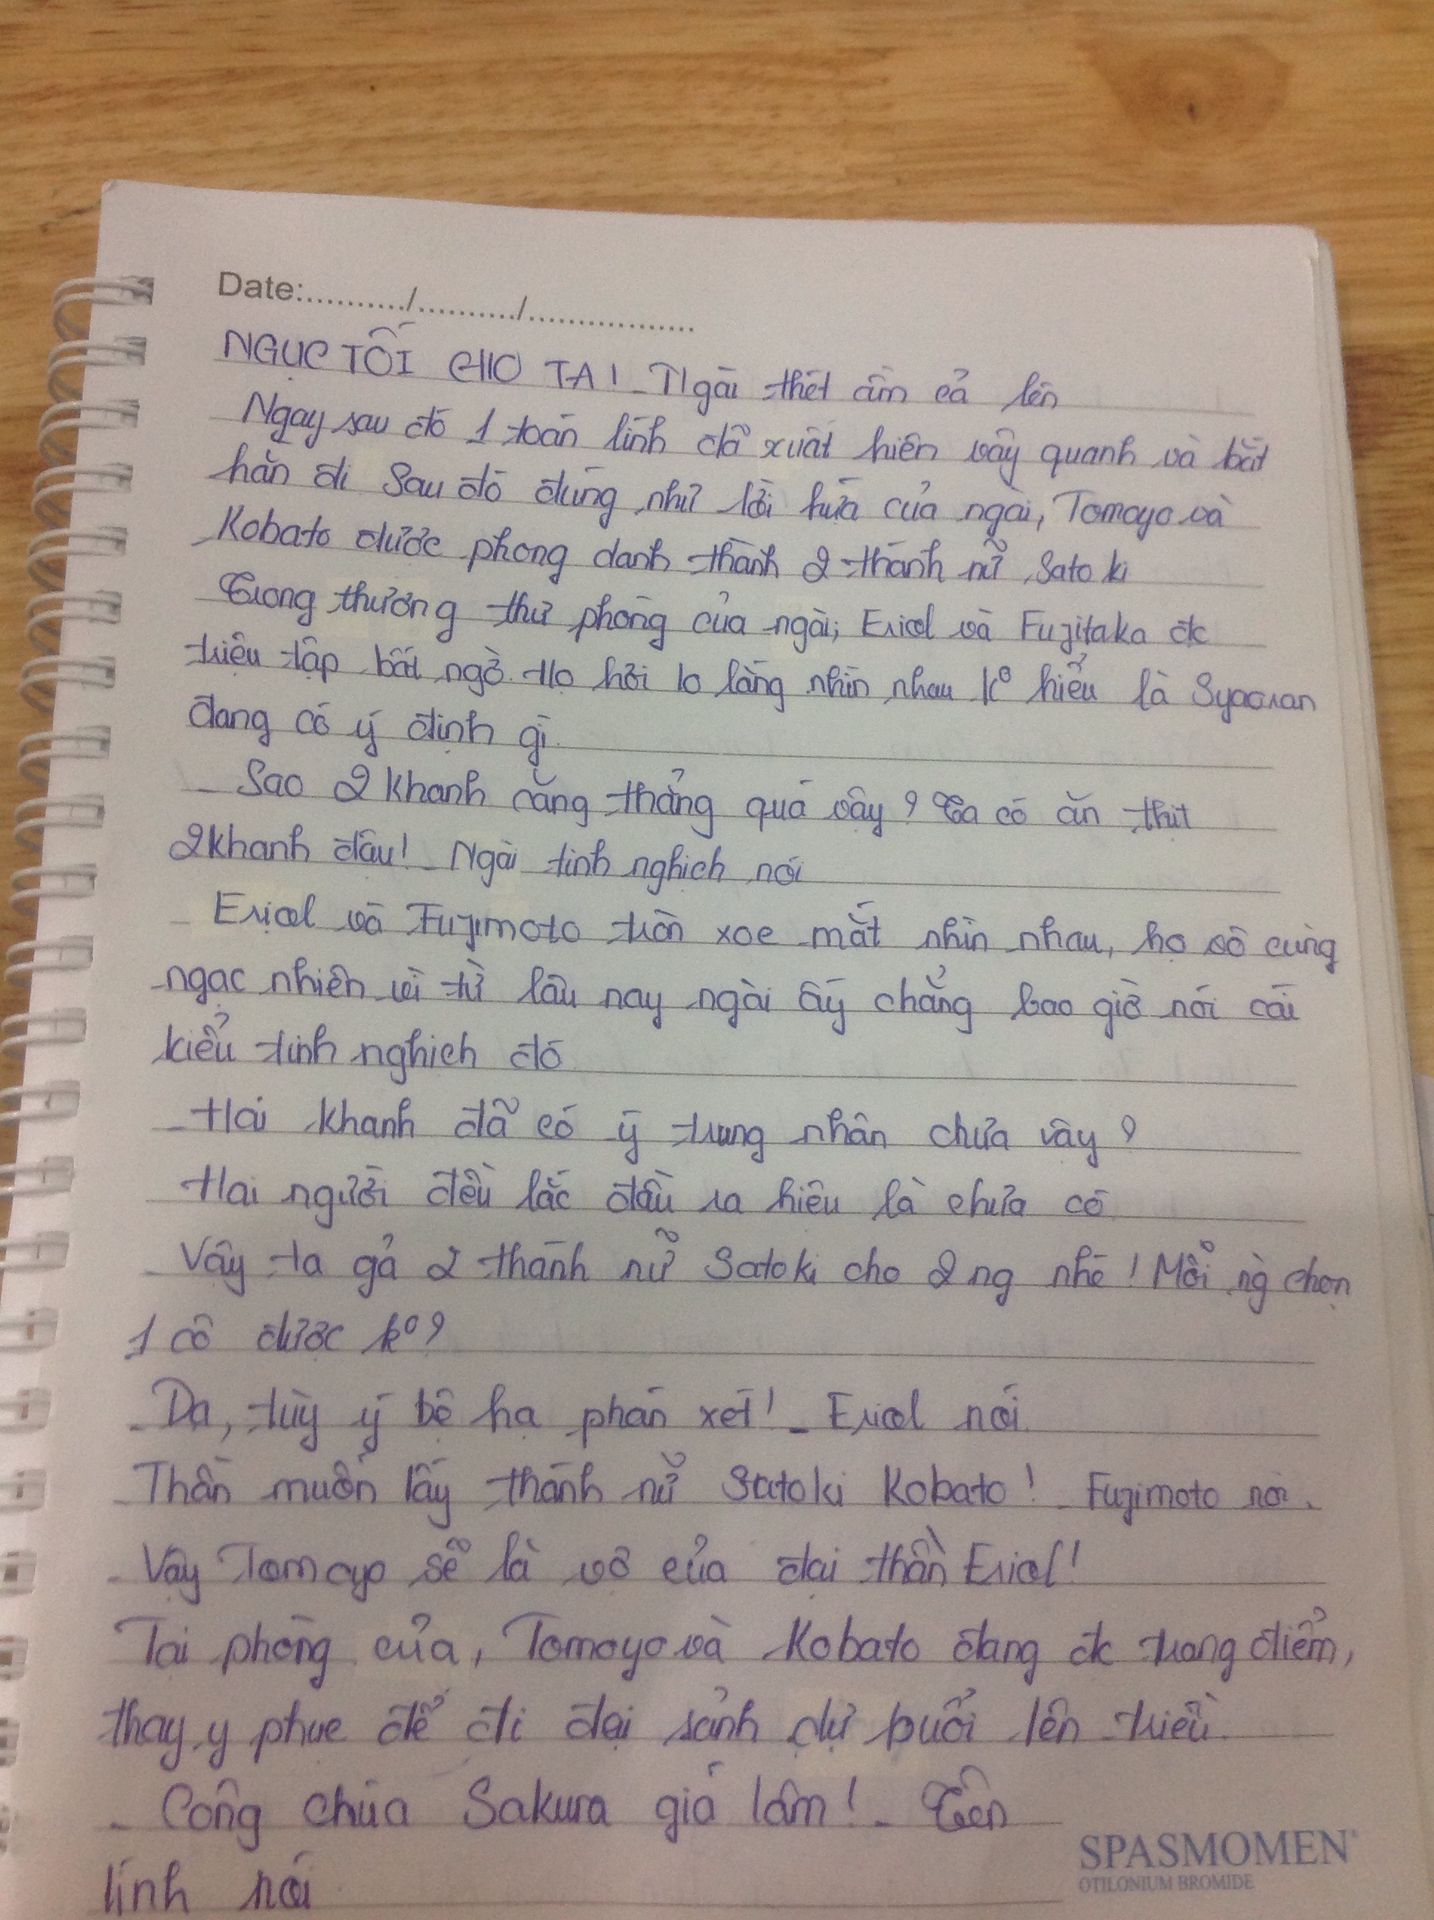 Date:........../........../.................
NGỤC TỐI CHO TA! - Ngài thét ầm cả lên
Ngay sau đó 1 toán lính đã xuất hiện vây quanh và bắt
hắn đi Sau đó đúng như lời hứa của ngài, Tomoyo và
Kobato được phong danh thành 2 thánh nữ Satoki
Trong thương thư phòng của ngài, Eriol và Fujitaka đc
triệu tập bất ngờ. Họ hơi lo lắng nhìn nhau k° hiểu là Syaoran
đang có ý định gì
- Sao 2 khanh căng thẳng quá vậy? Ta có ăn thịt
2 khanh đâu! - Ngài tinh nghịch nói
Eriol và Fujimoto tròn xoe mắt nhìn nhau, họ vô cùng
ngạc nhiên vì từ lâu nay ngài ấy chẳng bao giờ nói cái
kiểu tinh nghịch đó
- Hai khanh đã có ý trung nhân chưa vậy?
Hai người đều lắc đầu ra hiệu là chưa có
- Vậy ta gả 2 thánh nữ Satoki cho 2 ng nhé! Mỗi ng chọn
1 cô được k°?
- Dạ, tùy ý bệ hạ phán xét! - Eriol nói
- Thần muốn lấy thánh nữ Satoki Kobato! - Fujimoto nói.
- Vậy Tomoyo sẽ là vợ của đại thần Eriol!
Tại phòng của, Tomoyo và Kobato đang đc trang điểm,
thay y phục để đi đại sảnh dự buổi lên triều
- Công chúa Sakura giá lâm! - Tên
lính nói
SPASMOMEN®
OTILONIUM BROMIDE